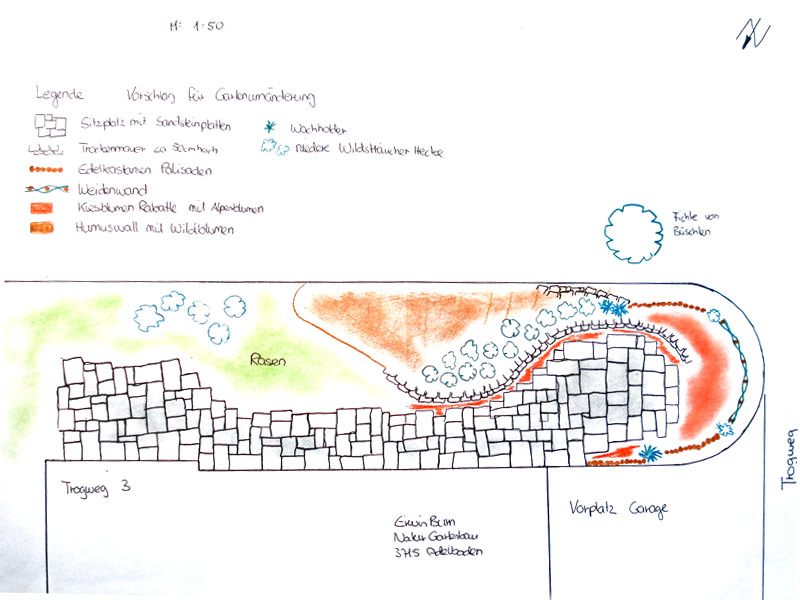 M: 1:50
Legende Vorschlag für Gartenumänderung
Sitzplatz mit Sandsteinplatten
Trockenmauer ca 50cm hoch
Edelkastanien Palisaden
Weidenwand
Kiesblumen Rabatte mit Alpenblumen
Humuswall mit Wildblumen
Wachholter
niedere Wildsträucher Hecke
Fichte von
Büschlen
Rasen
Trogweg 3
Erwin
Natur Gartenbau
3715 Adelboden
Vorplatz Garage
Trogweg